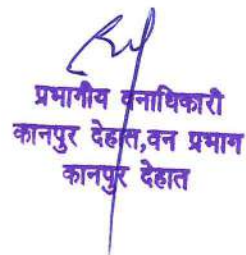 प्रभागीय वनाधिकारी
कानपुर देहात,वन प्रभाग
कानपुर देहात